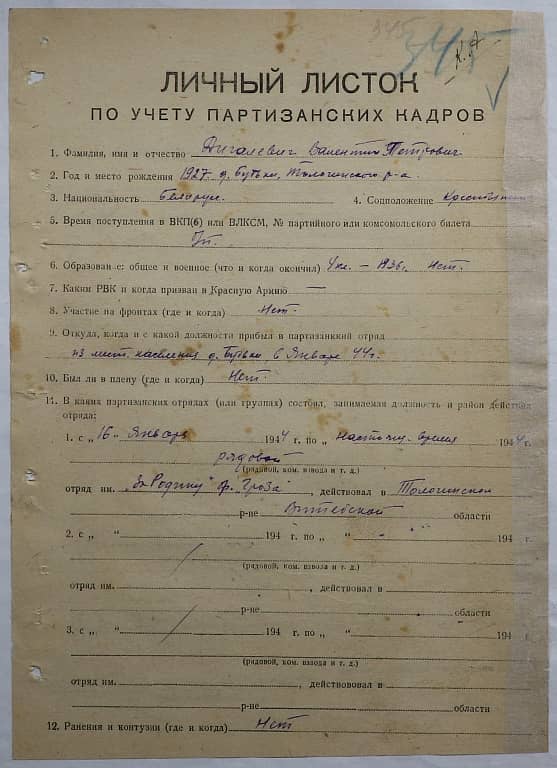 345
345
К.А
ЛИЧНЫЙ ЛИСТОК
ПО УЧЕТУ ПАРТИЗАНСКИХ КАДРОВ
1. Фамилия, имя и отчество Дигалевич Валентин Петрович
2. Год и место рождения 1927 д. Бутьки, Толочинского р-а.
3. Национальность Беларус. 4. Соцположение Крестьянин
5. Время поступления в ВКП(б) или ВЛКСМ, № партийного или комсомольского билета
б/п.
6. Образован с: общее и военное (что и когда окончил) 4 кл. – 1936 г. Нет.
7. Каким РВК и когда призван в Красную Армию —
8. Участие на фронтах (где и когда) Нет.
9. Откуда, когда и с какой должности прибыл в партизанкий отряд
из мест. населения д. Бутьки, в Январе 44 г.
10. Был ли в плену (где и когда) Нет.
11. В каких партизанских отрядах (или группах) состоял, занимаемая должность и район действия
отряда:
1. с „16" Января 1944 г. по „ настоящ. время 1944 г.
рядовой
(рядовой, ком. взвода и т. д.)
отряд им. „За Родину" бр. „Гроза", действовал в Толочинском
р-не Витебской области
2. с „ " 194 г. по „ " 194
(рядовой, ком. взвода и т. д.)
отряд им. , действовал в
р-не области
3. с „ " 194 г. по „ " 194
(рядовой, ком. взвода и т. д.)
отряд им. , действовал в
р-не области
12. Ранения и контузии (где и когда) Нет